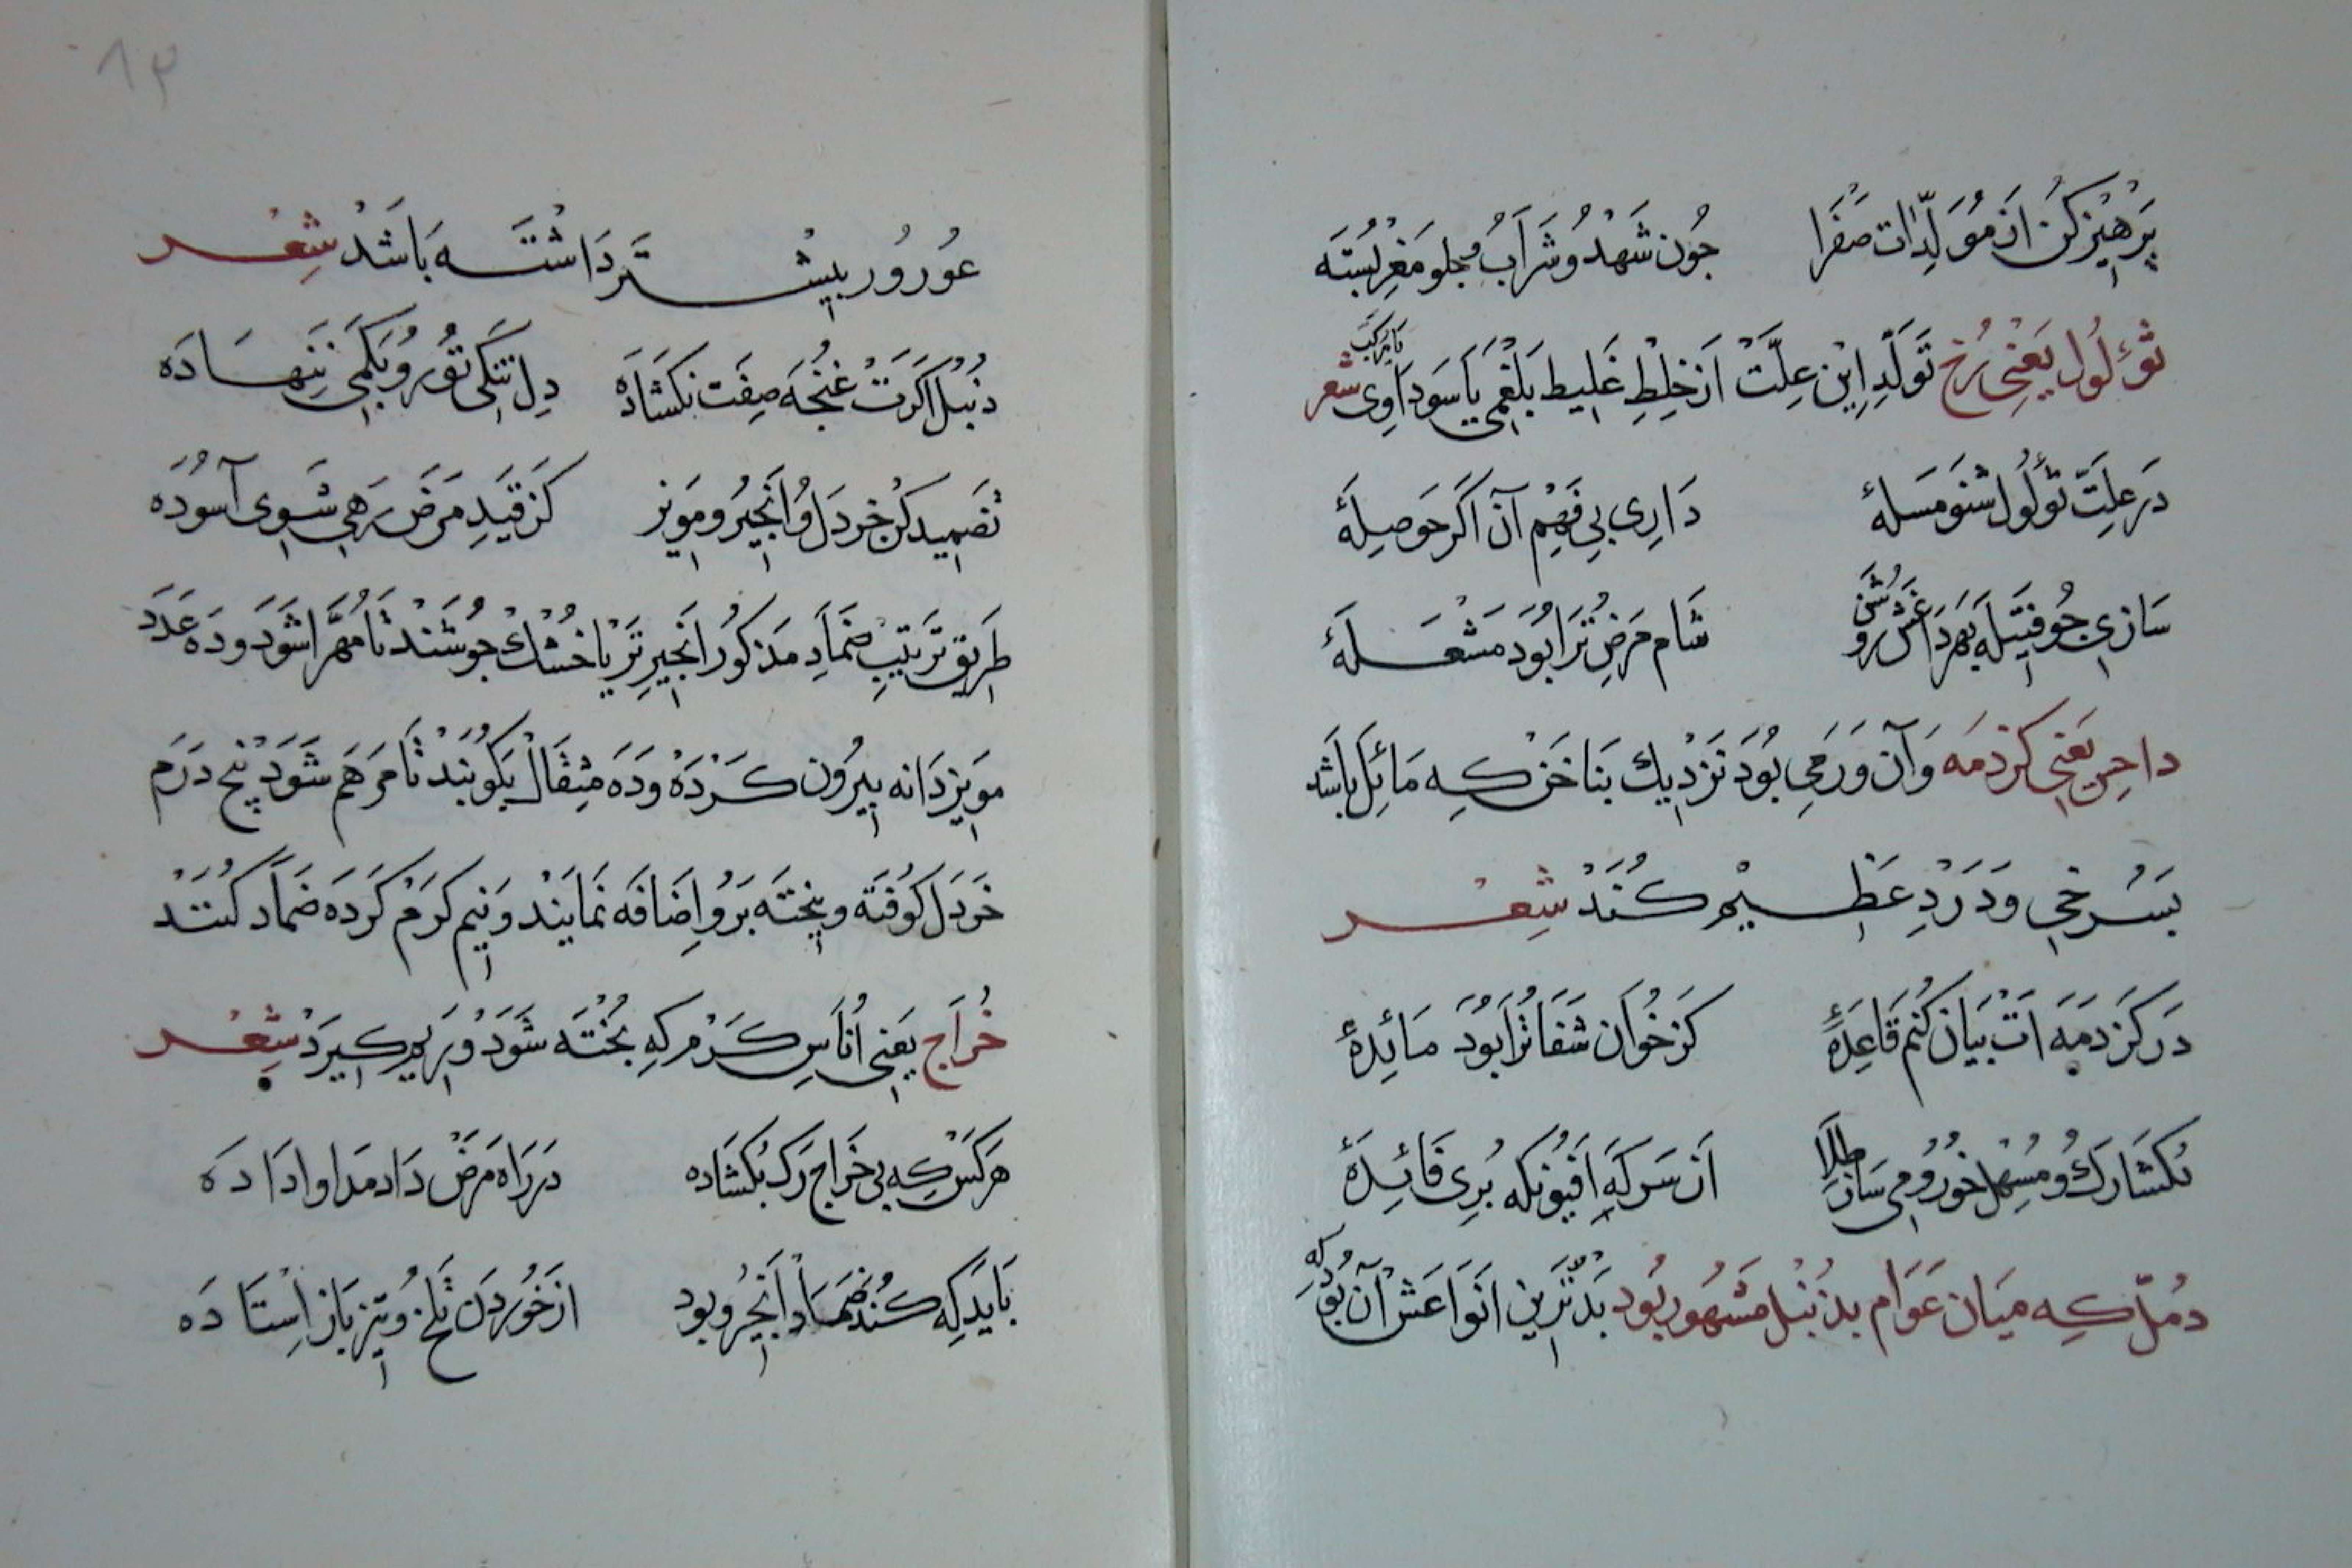 پرهیز کن از مولدات صفرا جون شهد و شراب و حلو و مغز بسته
ثؤلول یعنی زخ تولد این علت از خلط غلیط بلغمی یا سوداوی یا مرکب شعر
در علت ثؤلول شنو مسلهٔ داری بی فهم آن اکر حوصلهٔ
سازی جو فتیله بهر داغش روشن شام مرض ترا بود مشعلهٔ
داحس یعنی کزدمه وآن ورمی بود نزدیك بناخن که مائل باشد
بسرخی و درد عظیم کند شعر
در کزدمه ات بیان کنم قاعدهٔ کز خوان شفا ترا بود مائدهٔ
بکشا رك و مسهل خور و می ساز طلا از سرکه افیونکه بری فائدهٔ
دمل که میان عوام بدنبل مشهور بود بدترین انواعش آن بود که
۸۳
عورور بیشتر داشته باشد شعر
دنبل اکرت غنجه صفت نکشاده دل تنکی تو رو بکمی ننهاده
تضمید کن خردل و انجیر و مویز کز قید مرض رهی شوی آسوده
طریق ترتیب ضماد مذکور انجیر تر یا خشك جوشند تا مهرا شود و ده عدد
مویز دانه بیرون کرده و ده مثقال بکوبند تا مرهم شود پنج درم
خردل کوفته و بیخته برو اضافه نمایند و نیم کرم کرده ضماد کنند
خراج یعنی اناس کرم که بخته شود و ریم کیرد شعر
هر کس که بی خراج رك بکشاده در راه مرض داد مداوا داده
باید که کند ضماد انجیر و بود از خوردن تلخ و تیز باز استاده